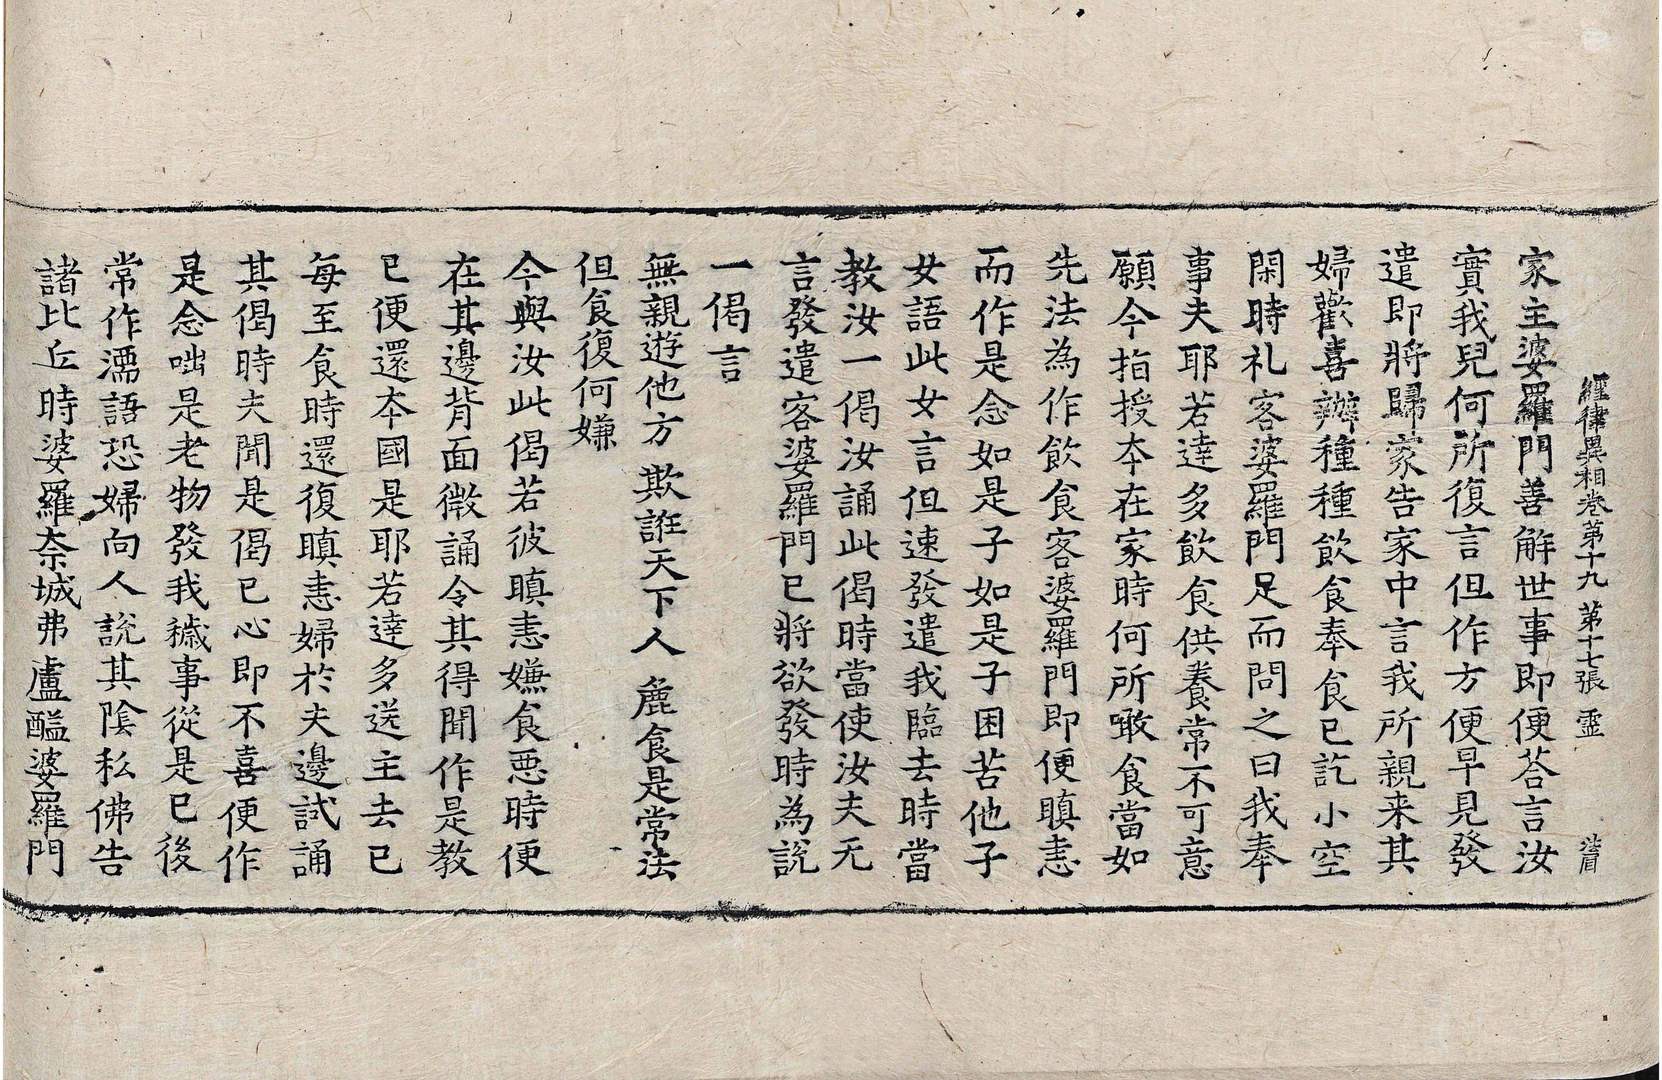 經律異相卷第十九 第十七張 靈
家主婆羅門善解世事即便荅言汝
實我兒何所復言但作方便早見發
遣即將歸家告家中言我所親来其
婦歡喜辦種種飲食奉食已訖小空
閑時礼客婆羅門足而問之曰我奉
事夫耶若達多飲食供養常不可意
願今指授夲在家時何所噉食當如
先法為作飲食客婆羅門即便瞋恚
而作是念如是子如是子困苦他子
女語此女言但速發遣我臨去時當
教汝一偈汝誦此偈時當使汝夫无
言發遣客婆羅門已將欲發時為說
一偈言
無親遊他方 欺誑天下人 麁食是常法
但食復何嫌
今與汝此偈若彼瞋恚嫌食惡時便
在其邊背面微誦令其得聞作是教
已便還夲國是耶若達多送主去已
每至食時還復瞋恚婦於夫邊試誦
其偈時夫聞是偈已心即不喜便作
是念咄是老物發我穢事從是已後
常作濡語恐婦向人說其陰私佛告
諸比丘時婆羅奈城弗盧醯婆羅門